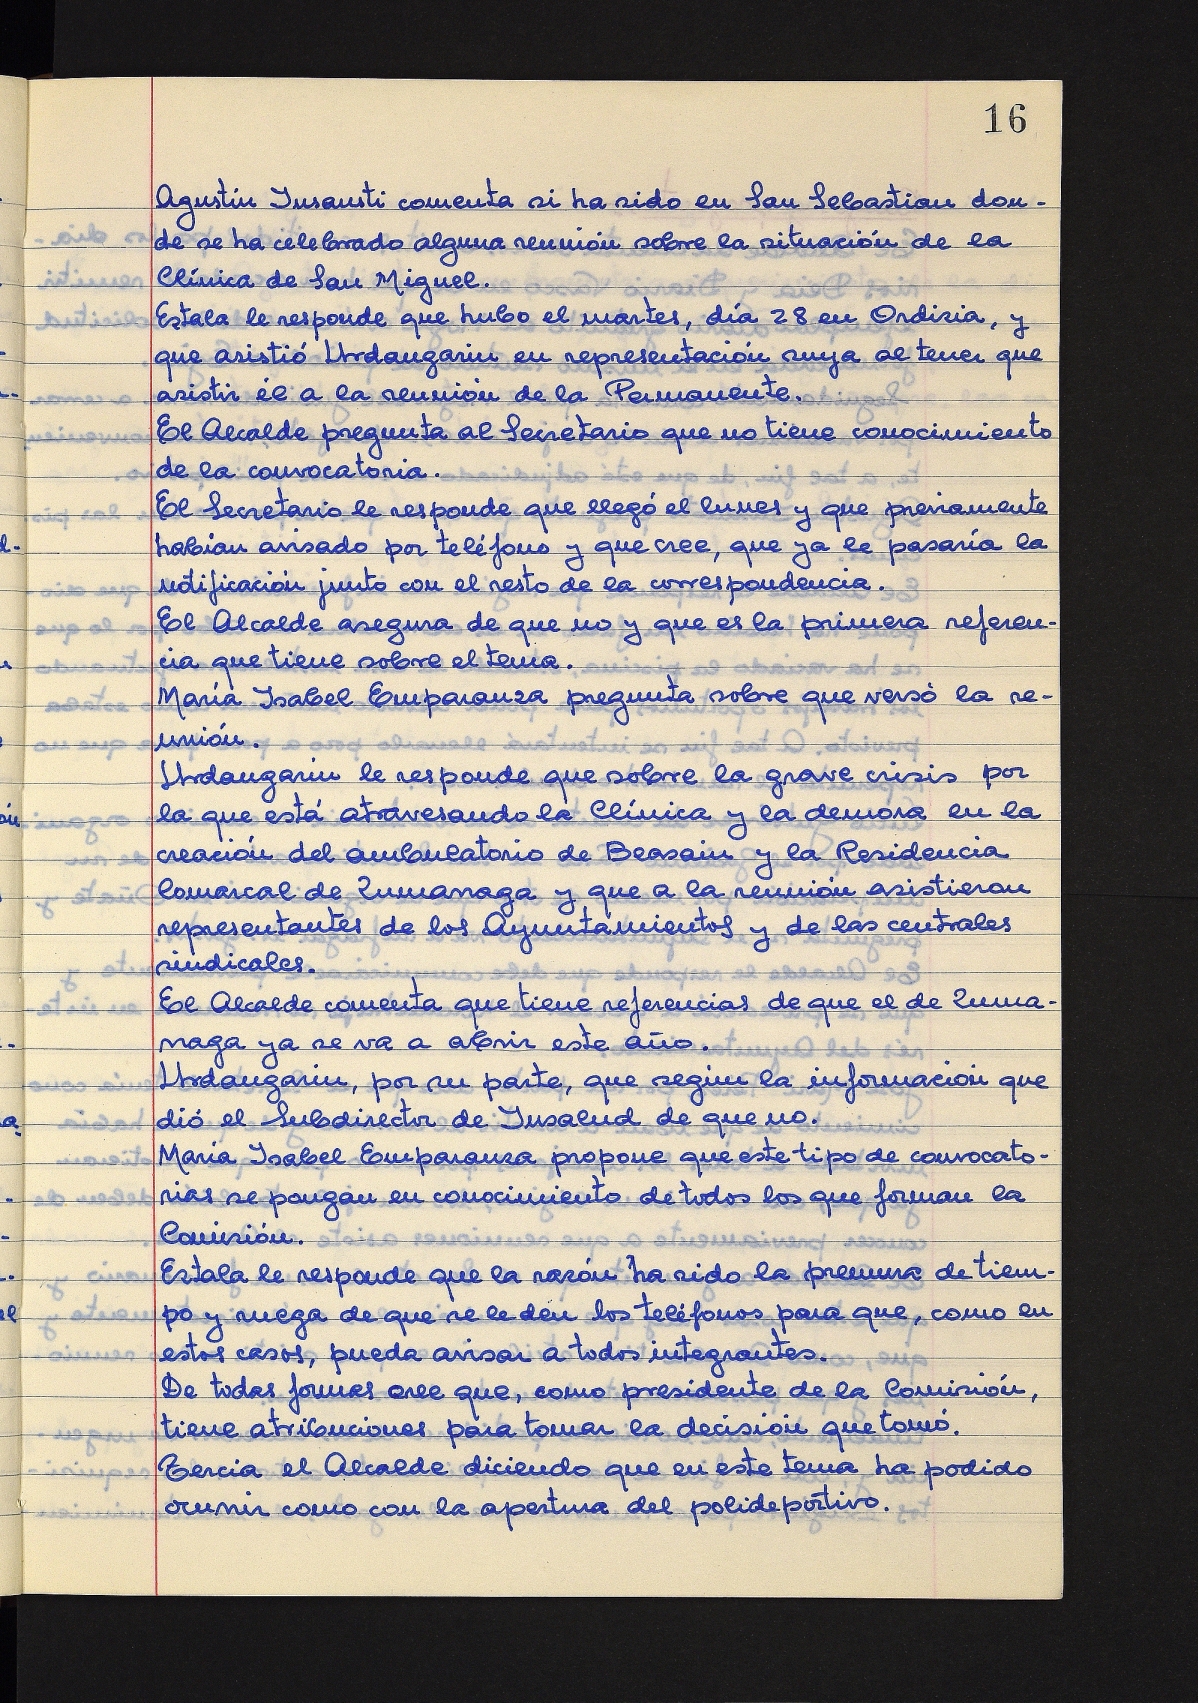 16
Agustin Insausti comenta si ha sido en San Sebastian don-
de se ha celebrado alguna reunión sobre la situación de la
Clínica de San Miguel.
Estala le responde que hubo el martes, día 28 en Ordizia, y
que asistió Urdangarin en representación suya al tener que
asistir él a la reunión de la Permanente.
El Alcalde pregunta al Secretario que no tiene conocimiento
de la convocatoria.
El Secretario le responde que llegó el lunes y que previamente
habian avisado por teléfono y que cree, que ya le pasaría la
notificación junto con el resto de la correspondencia.
El Alcalde asegura de que no y que es la primera referen-
cia que tiene sobre el tema.
María Isabel Emparanza pregunta sobre que versó la re-
unión.
Urdangarin le responde que sobre la grave crisis por
la que está atravesando la Clínica y la demora en la
creación del ambulatorio de Beasain y la Residencia
Comarcal de Zumarraga y que a la reunión asistieron
representantes de los Ayuntamientos y de las centrales
sindicales.
El Alcalde comenta que tiene referencias de que el de Zuma-
rraga ya se va a abrir este año.
Urdangarin, por su parte, que según la información que
dió el Subdirector de Insalud de que no.
María Isabel Emparanza propone que este tipo de convocato-
rias se pongan en conocimiento de todos los que forman la
Comisión.
Estala le responde que la razón ha sido la premura de tiem-
po y ruega de que se le den los teléfonos para que, como en
estos casos, pueda avisar a todos integrantes.
De todas formas cree que, como presidente de la Comisión,
tiene atribuciones para tomar la decisión que tomó.
Tercia el Alcalde diciendo que en este tema ha podido
ocurrir como con la apertura del polideportivo.